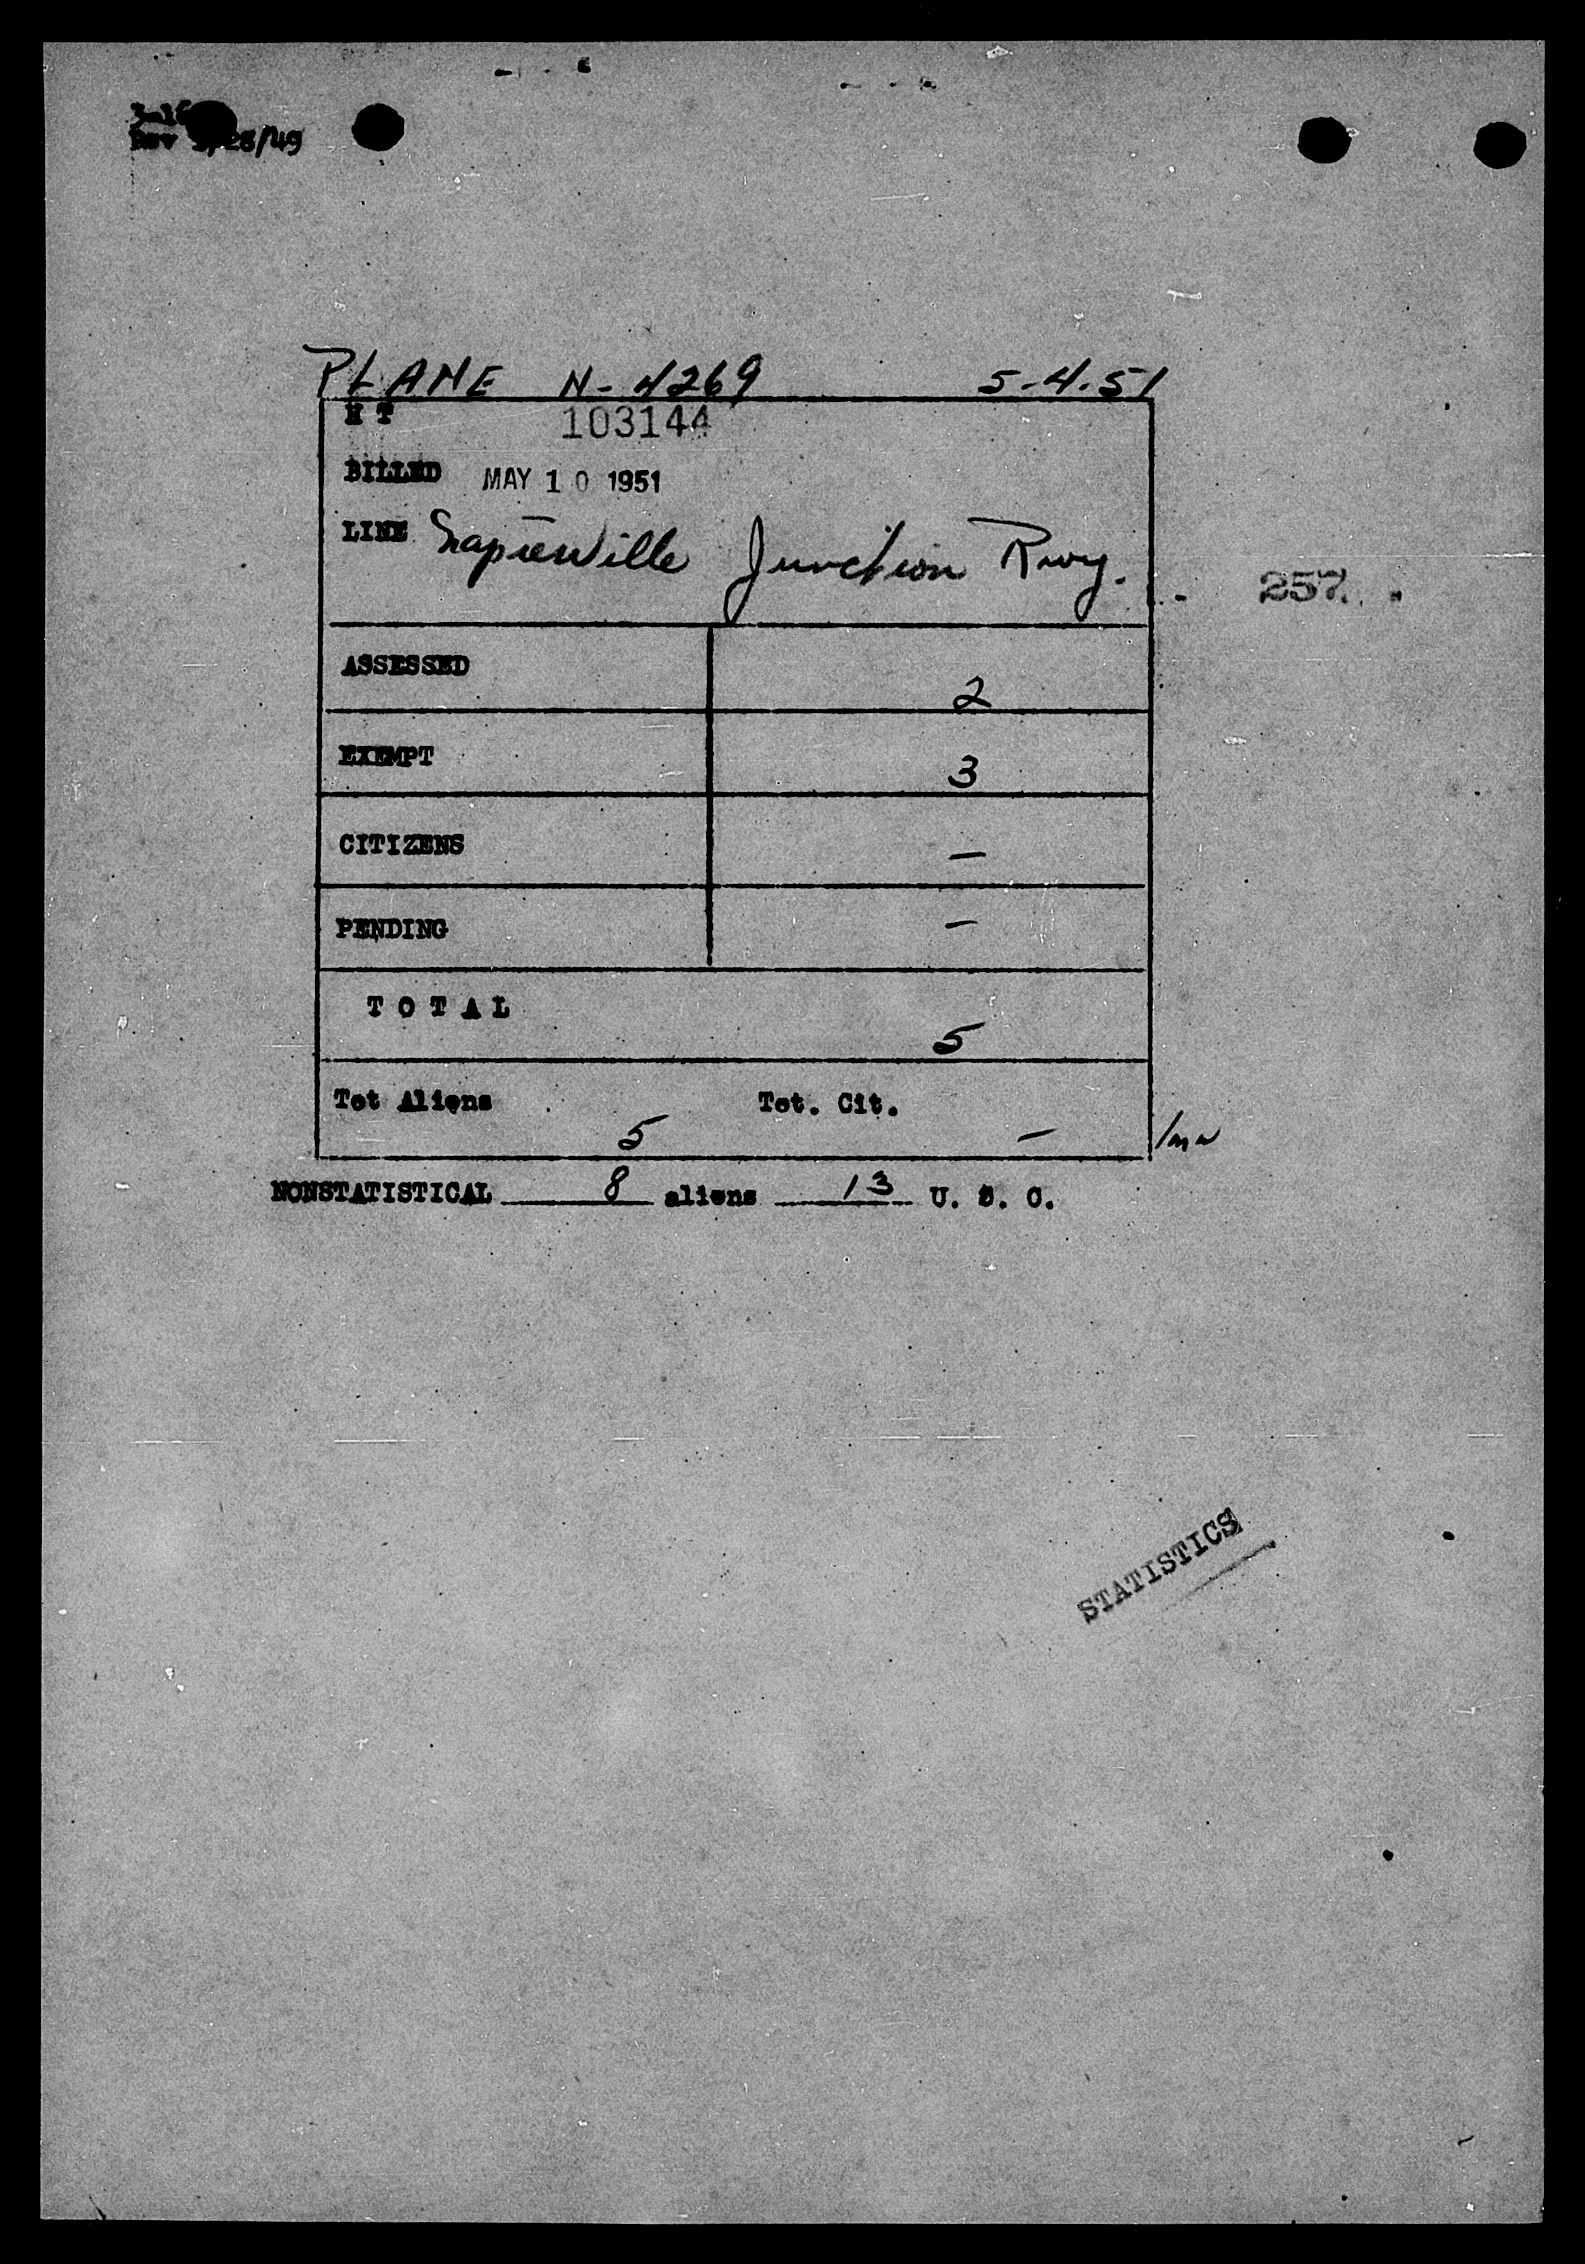 Rev /28/49
PLANE N-4269 5-4-51
H T 103144
BILLED MAY 10 1951
LINE Napierville Junction Rwy.
257.
ASSESSED 2
EXEMPT 3
CITIZENS —
PENDING —
T O T A L 5
Tot Aliens 5 Tot. Cit. —
NONSTATISTICAL 8 aliens 13 U. S. C.
STATISTICS